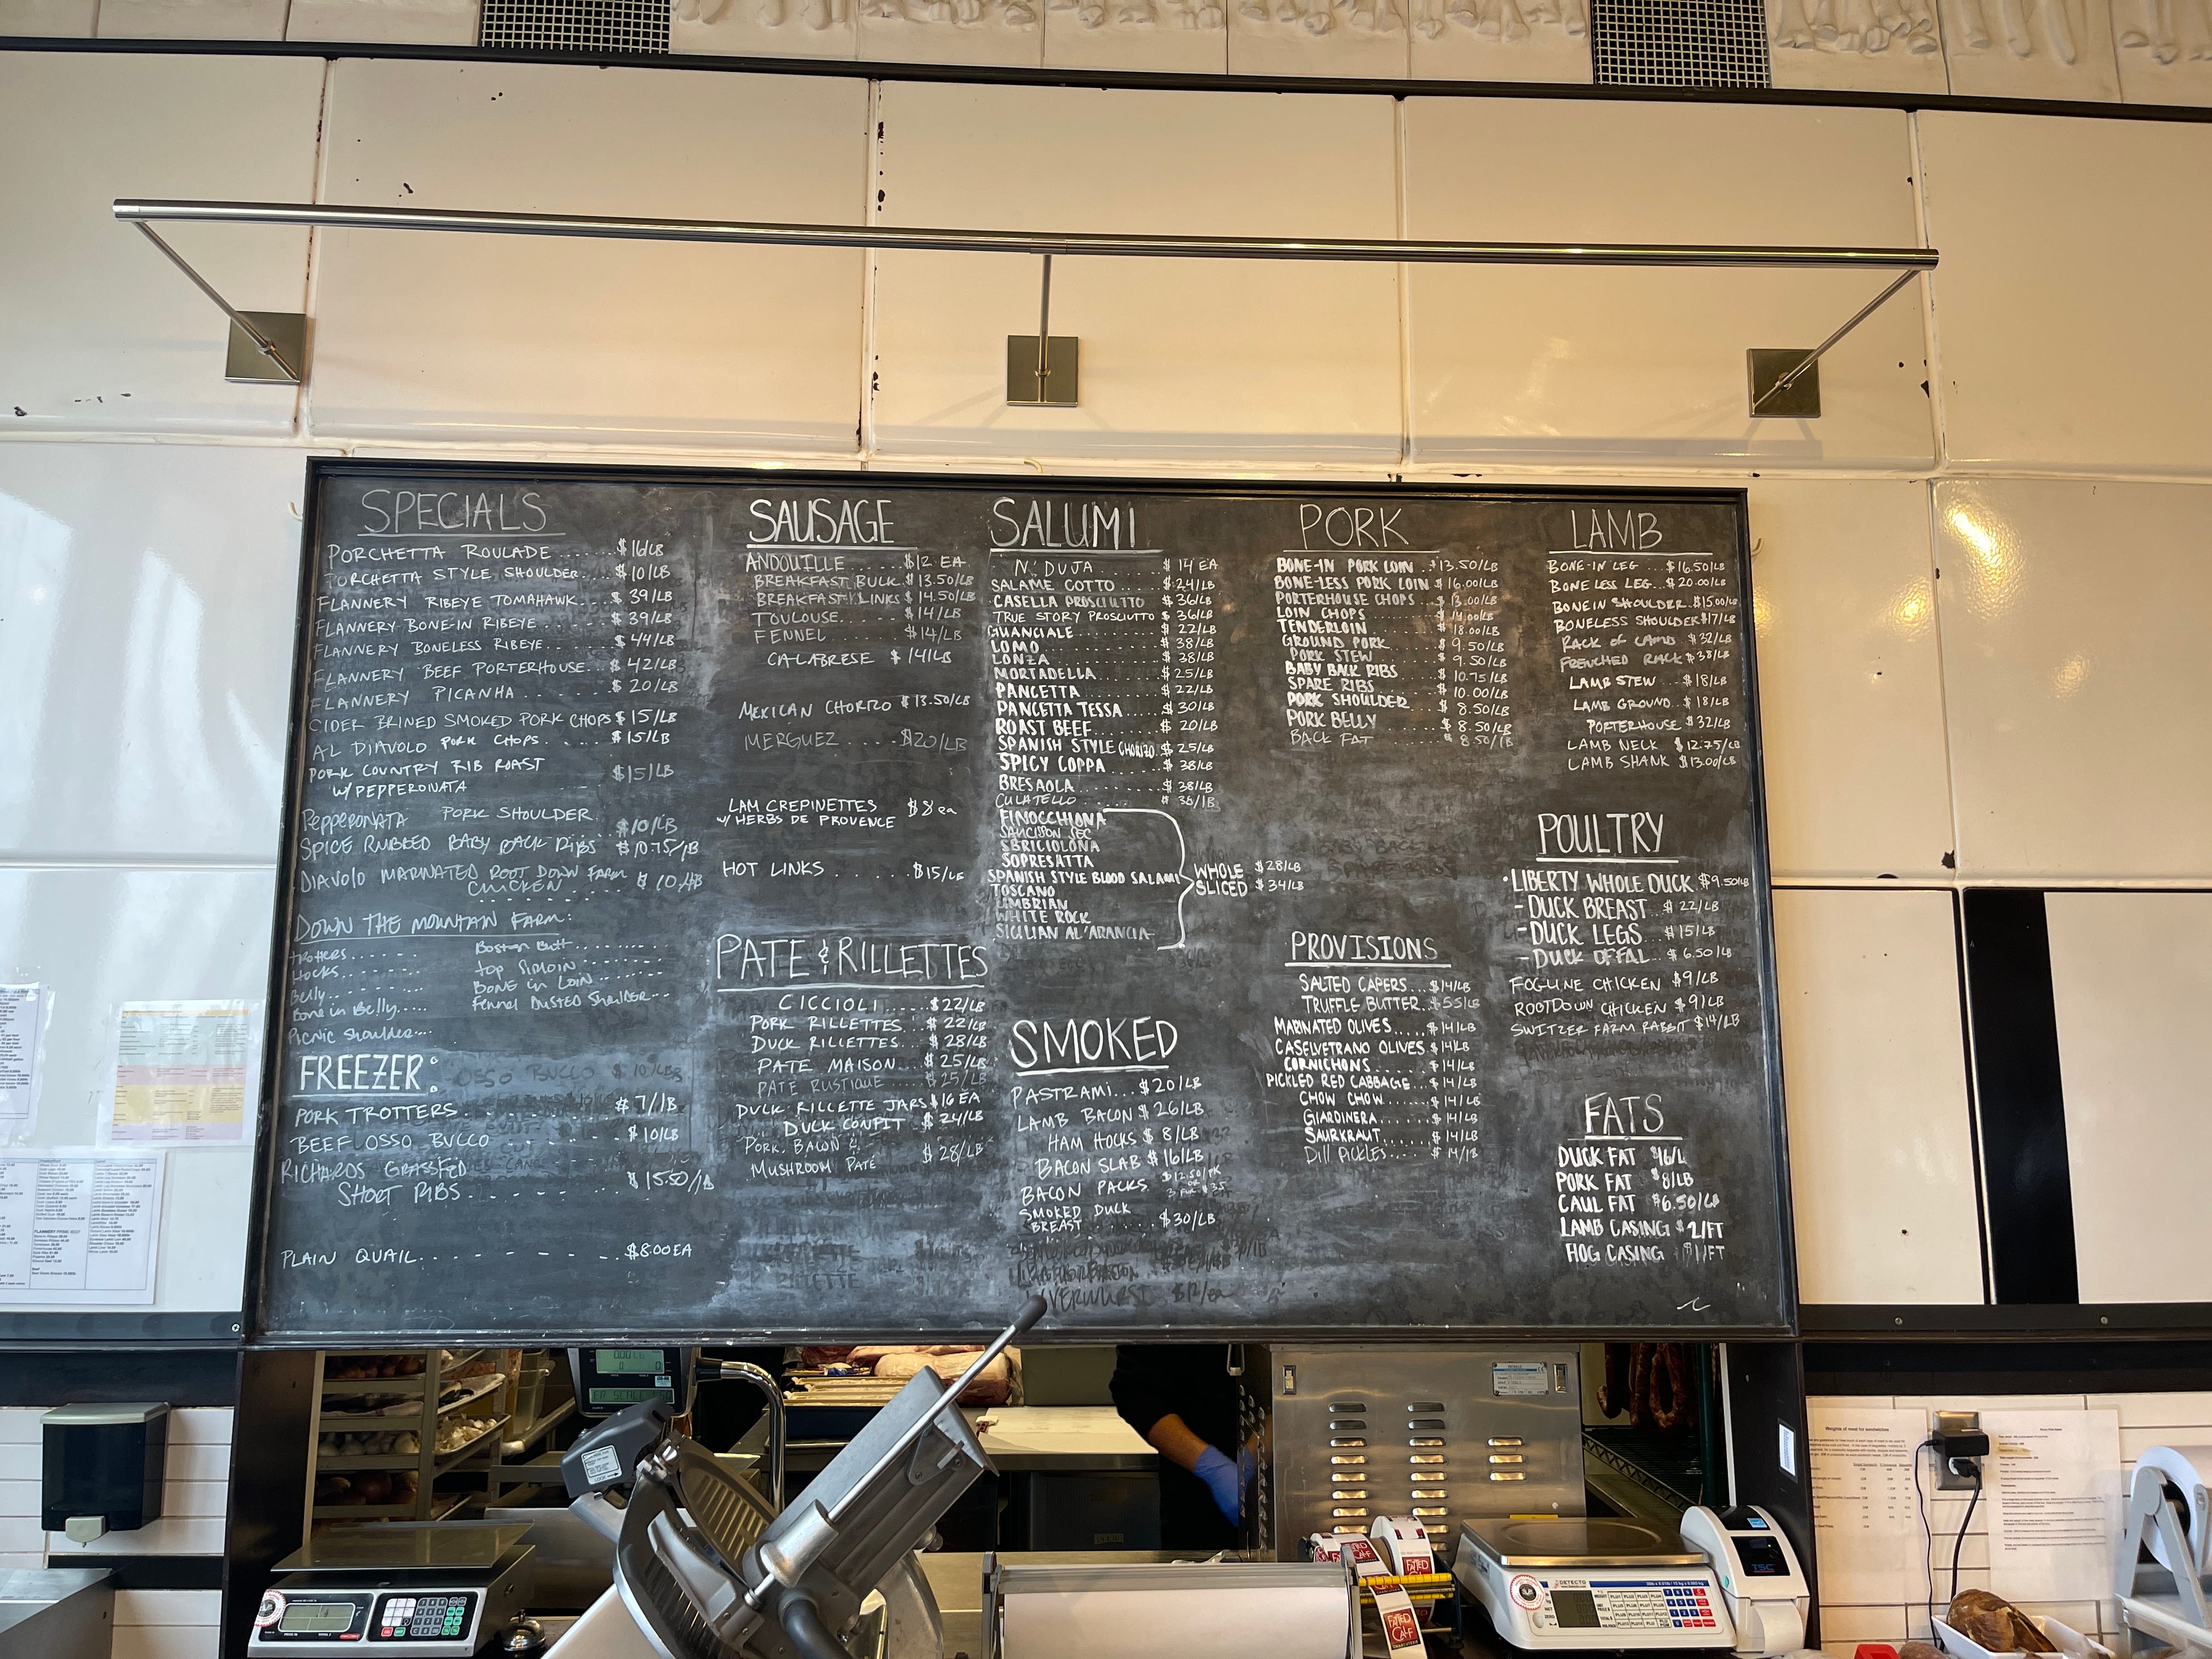 SPECIALS
PORCHETTA ROULADE....... $16/LB
PORCHETTA STYLE SHOULDER... $10/LB
FLANNERY RIBEYE TOMAHAWK.... $39/LB
FLANNERY BONE-IN RIBEYE.... $39/LB
FLANNERY BONELESS RIBEYE... $44/LB
FLANNERY BEEF PORTERHOUSE... $42/LB
FLANNERY PICANHA....... $20/LB
CIDER BRINED SMOKED PORK CHOPS $15/LB
AL DIAVOLO PORK CHOPS..... $15/LB
PORK COUNTRY RIB ROAST $15/LB
W/ PEPPERONATA
PEPPERONATA PORK SHOULDER $10/LB
SPICE RUBBED BABY BACK RIBS $10.75/LB
DIAVOLO MARINATED ROOT DOWN FARM $10/LB
CHICKEN
DOWN THE MOUNTAIN FARM:
TROTTERS.......
HOCKS.........
Belly.........
Bone in Belly.....
Picnic Shoulder....
Boston Butt.........
Top Sirloin.........
BONE in LOIN.......
Fennel DUSTED SHOULDER...
FREEZER:
PORK TROTTERS......... $7/LB
BEEF OSSO BUCCO....... $10/LB
RICHARDS GRASSFED
SHORT RIBS........ $15.50/LB
PLAIN QUAIL......... $8.00 EA
SAUSAGE
ANDOUILLE....... $12 EA
BREAKFAST BULK $13.50/LB
BREAKFAST LINKS $14.50/LB
TOULOUSE..... $14/LB
FENNEL $14/LB
CALABRESE $14/LB
MEXICAN CHORIZO $13.50/LB
MERGUEZ.... $20/LB
LAM CREPINETTES $8 ea
W/ HERBS DE PROVENCE
HOT LINKS....... $15/LB
PATE & RILLETTES
CICCIOLI.... $22/LB
PORK RILLETTES... $22/LB
DUCK RILLETTES... $28/LB
PATE MAISON... $25/LB
PATE RUSTIQUE $25/LB
DUCK RILLETTE JARS $16 EA
DUCK CONFIT... $24/LB
PORK, BACON &
MUSHROOM PATE $28/LB
SALUMI
N'DUJA...... $14 EA
SALAME COTTO..... $24/LB
CASELLA PROSCIUTTO $36/LB
TRUE STORY PROSCIUTTO $36/LB
GUANCIALE....... $22/LB
LOMO......... $38/LB
LONZA........ $38/LB
MORTADELLA..... $25/LB
PANCETTA....... $22/LB
PANCETTA TESSA..... $30/LB
ROAST BEEF...... $20/LB
SPANISH STYLE CHORIZO $25/LB
SPICY COPPA...... $38/LB
BRESAOLA........ $38/LB
CULATELLO
FINOCCHIONA
SAUCISSON SEC
SBRICIOLONA
SOPRESATTA
SPANISH STYLE BLOOD SALAMI
TOSCANO
UMBRIAN
WHITE ROCK
SICILIAN AL'ARANCIA
WHOLE $28/LB
SLICED $34/LB
SMOKED
PASTRAMI... $20/LB
LAMB BACON $26/LB
HAM HOCKS $8/LB
BACON SLAB $16/LB
BACON PACKS $12.50/PK
OR
3 FOR $35
SMOKED DUCK
BREAST...... $30/LB
LIVERWURST $12/ea
PORK
BONE-IN PORK LOIN.. $13.50/LB
BONE-LESS PORK LOIN $16.00/LB
PORTERHOUSE CHOPS.. $13.00/LB
LOIN CHOPS..... $14.00/LB
TENDERLOIN..... $18.00/LB
GROUND PORK.... $9.50/LB
PORK STEW..... $9.50/LB
BABY BACK RIBS... $10.75/LB
SPARE RIBS..... $10.00/LB
PORK SHOULDER... $8.50/LB
PORK BELLY..... $8.50/LB
BACK FAT...... $8.50/LB
PROVISIONS
SALTED CAPERS... $14/LB
TRUFFLE BUTTER... $55/LB
MARINATED OLIVES.... $14/LB
CASELVETRANO OLIVES $14/LB
CORNICHONS..... $14/LB
PICKLED RED CABBAGE... $14/LB
CHOW CHOW.... $14/LB
GIARDINERA..... $14/LB
SAURKRAUT..... $14/LB
DILL PICKLES.... $14/LB
LAMB
BONE-IN LEG... $16.50/LB
BONELESS LEG... $20.00/LB
BONEIN SHOULDER.. $15.00/LB
BONELESS SHOULDER $17/LB
RACK OF LAMB $32/LB
FRENCHED RACK $38/LB
LAMB STEW... $18/LB
LAMB GROUND. $18/LB
PORTERHOUSE $32/LB
LAMB NECK $12.75/LB
LAMB SHANK $13.00/LB
POULTRY
• LIBERTY WHOLE DUCK $9.50/LB
- DUCK BREAST.. $22/LB
- DUCK LEGS... $15/LB
- DUCK OFFAL.. $6.50/LB
FOGLINE CHICKEN $9/LB
ROOTDOWN CHICKEN $9/LB
SWITZER FARM RABBIT $14/LB
FATS
DUCK FAT $16/L
PORK FAT $8/LB
CAUL FAT $6.50/LB
LAMB CASING $2/FT
HOG CASING $1/FT
Weights of meat for sandwiches
DETECTO
TSC
FATTED
CALF
CHARCUTERIE